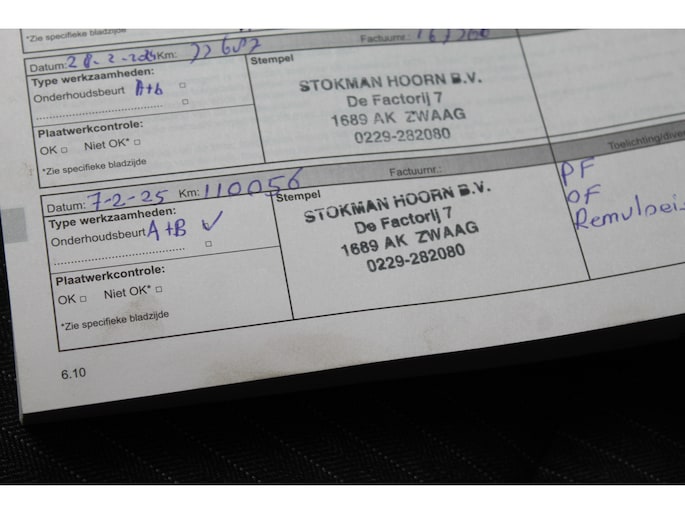 *Zie specifieke bladzijde
Datum: 28-2-2024 Km: 77687 Factuurnr.:
Type werkzaamheden:
Onderhoudsbeurt A+b
Stempel
STOKMAN HOORN B.V.
De Factorij 7
1689 AK ZWAAG
0229-282080
Plaatwerkcontrole:
OK □ Niet OK* □
*Zie specifieke bladzijde
Datum: 7-2-25 Km: 110056 Factuurnr.: Toelichting/diver
Type werkzaamheden:
Onderhoudsbeurt A+B ✓
Stempel
STOKMAN HOORN B.V.
De Factorij 7
1689 AK ZWAAG
0229-282080
PF
OF
Remvloeis
Plaatwerkcontrole:
OK □ Niet OK* □
*Zie specifieke bladzijde
6.10